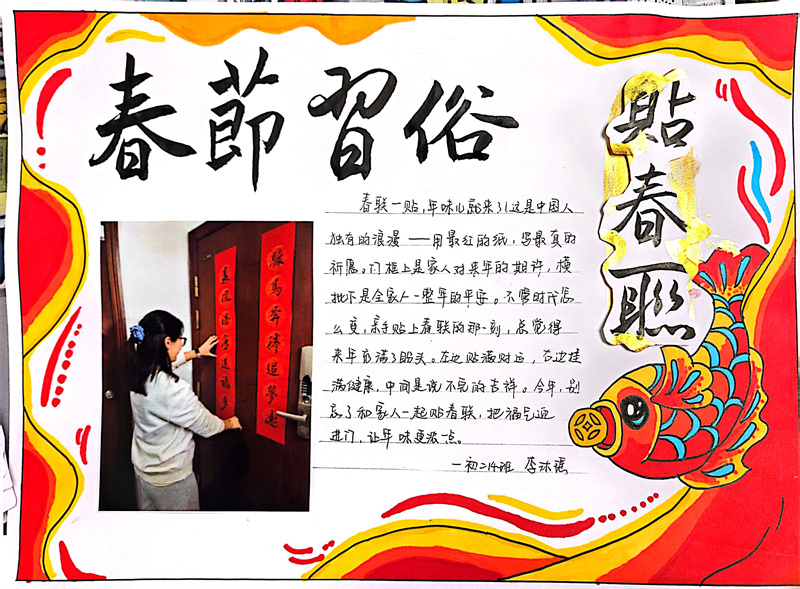 春節習俗
貼春聯
春联一贴,年味儿就来了!这是中国人
独有的浪漫——用最红的纸,写最真的
祈愿。门框上是家人对来年的期许,横
批下是全家人一整年的平安。不管时代怎
么变,亲手贴上春联的那一刻,总觉得
来年充满了盼头。左边贴福财运,右边挂
满健康,中间是说不完的吉祥。今年,别
忘了和家人一起贴春联,把福气迎
进门,让年味更浓一点。
一初二14班 李沐
駿馬奔騰追夢遠
春風送福